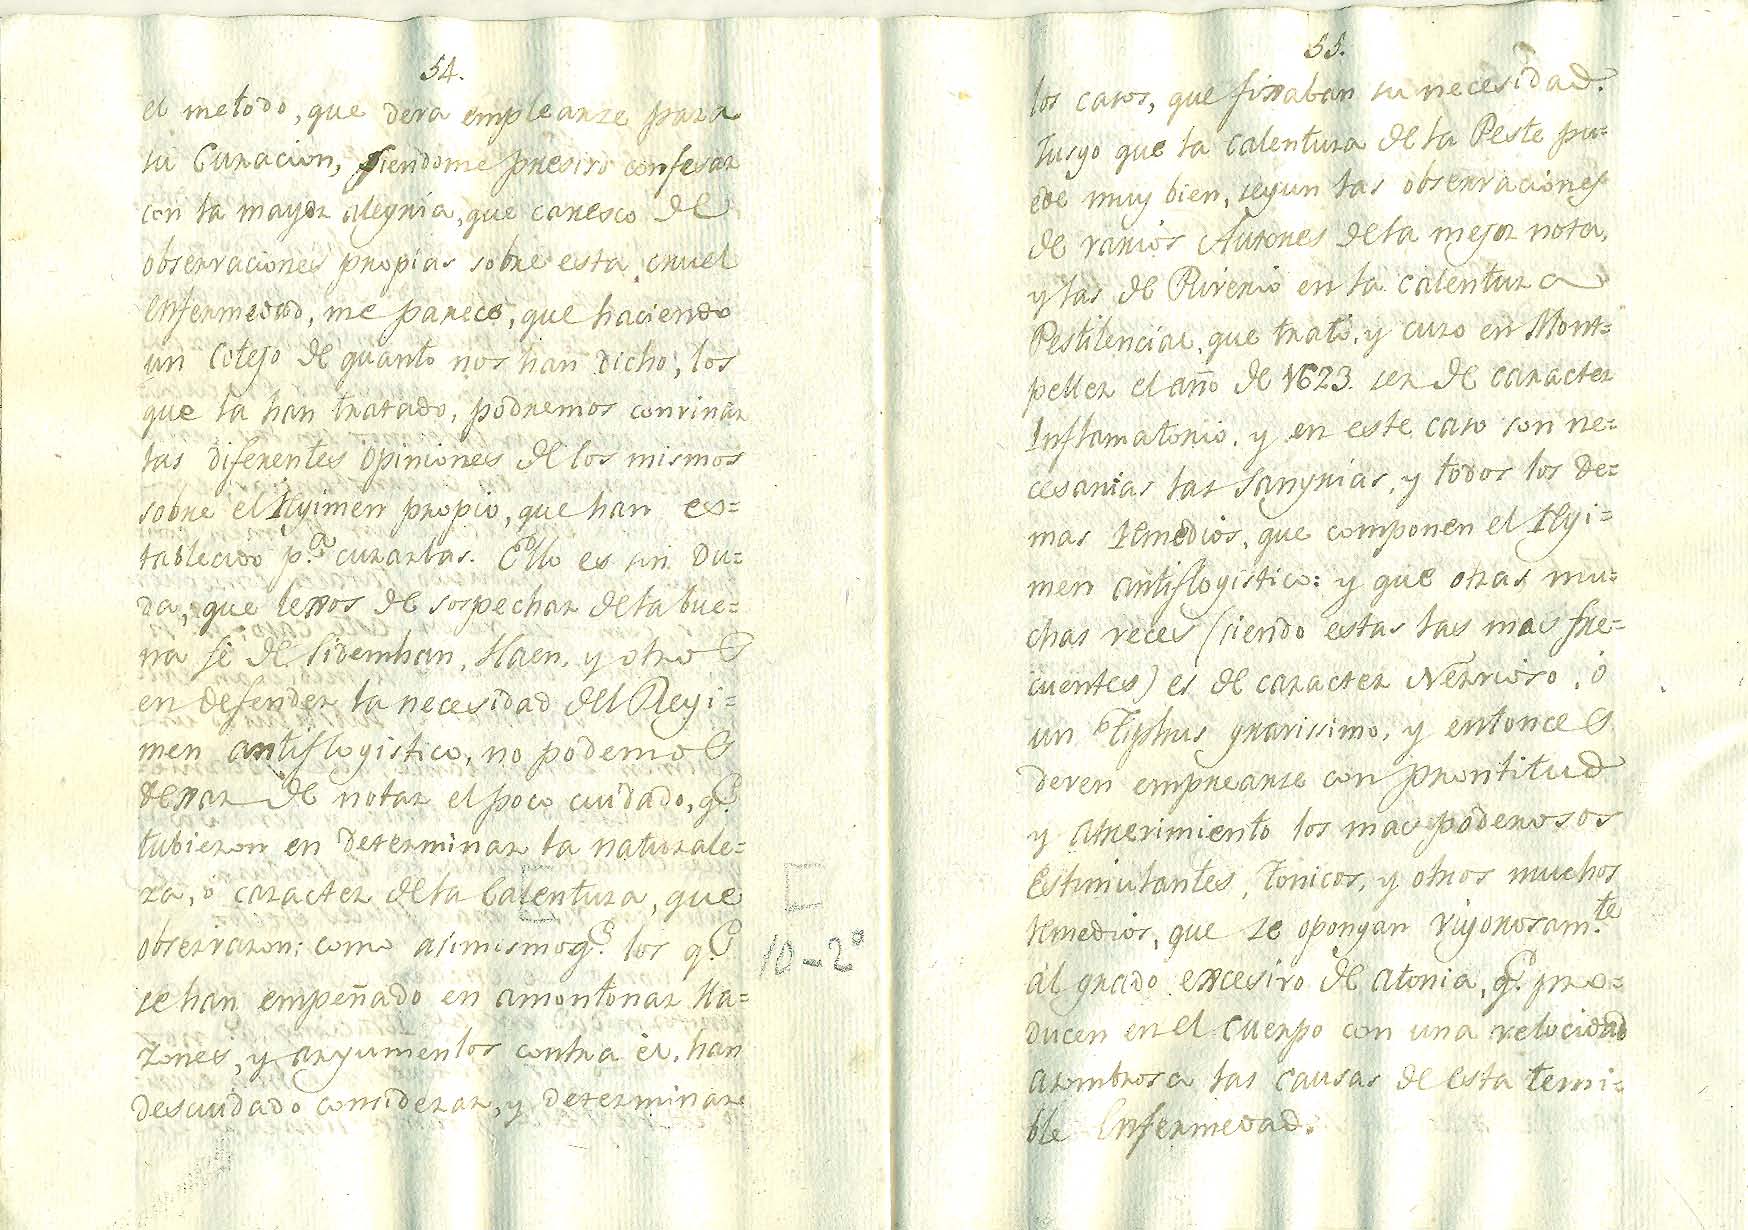 54.
el metodo, que deva emplearse para
su Curacion, siendome presiso confesar
con la mayor alegria, que caresco de
observaciones propias sobre esta cruel
enfermedad, me parece, que haciendo
un Cotejo de quanto nos han dicho, los
que la han tratado, podremos convinar
las diferentes opiniones de los mismos
sobre el Regimen propio, que han es=
tablecido p.ª curarlas. Ello es sin du=
da, que lexos de sospechar de la bue=
na fé de Sidemhan, Haen, y otros
en defender la necesidad del Regi=
men antiflogistico, no podemos
dexar de notar el poco cuidado, q.e
tubieron en determinar la naturale=
za, ó caracter de la Calentura, que
observaron: como asimismo q.e los q.e
se han empeñado en amontonar Ra=
zones, y argumentos contra él, han
descuidado considerar, y determinar
10-2º
55.
los casos, que fixaban su necesidad.
Jusgo que la Calentura de la Peste pu=
ede muy bien, segun las observaciones
de varios Autores de la mejor nota,
y las de Riverio en la calentura
Pestilencial, que trató, y curo en Mont=
peller el año de 1623. ser de caracter
Inflamatorio, y en este caso son ne=
cesarias las Sangrias, y todos los de=
mas remedios, que componen el Regi=
men antiflogistico: y que otras mu=
chas veces (siendo estas las mas fre=
cuentes) es de caracter Nervioso, ó
un Tiphus gravissimo, y entonces
deven emprearse con prontitud
y atrevimiento los mas poderosos
Estimulantes, Tonicos, y otros muchos
remedios, que se opongan rigorosam.te
al grado excesivo de atonia, q.e pro=
ducen en el cuerpo con una velocidad
asombrosa las causas de esta temi=
ble Enfermedad.